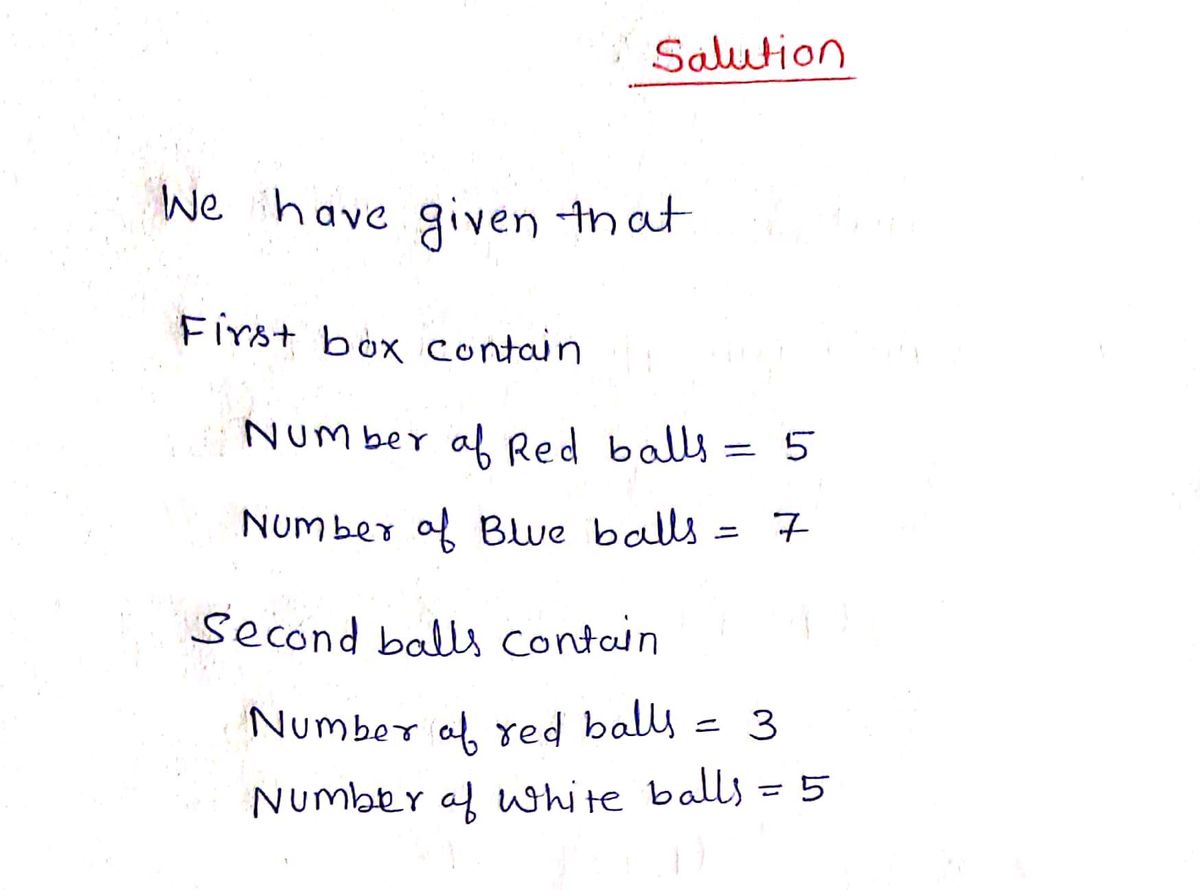 Salution
We have given that
First box contain
Number of Red balls = 5
Number of Blue balls = 7
Second balls contain
Number of red balls = 3
Number of white balls = 5